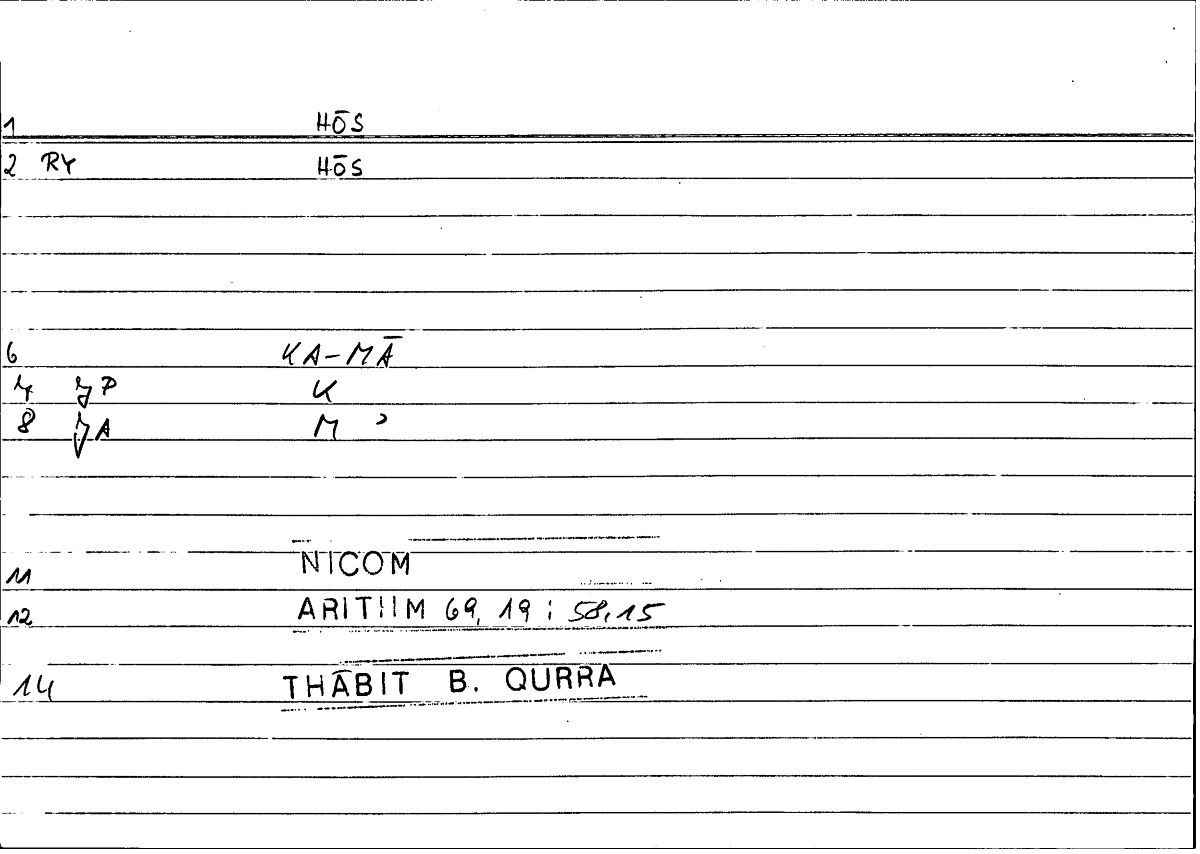 1 HŌS
2 RY HŌS
6 KA-MĀ
7 JP K
8 JA M ʾ
11 NICOM
12 ARITHM 69, 19 ; 58,15
14 THĀBIT B. QURRA